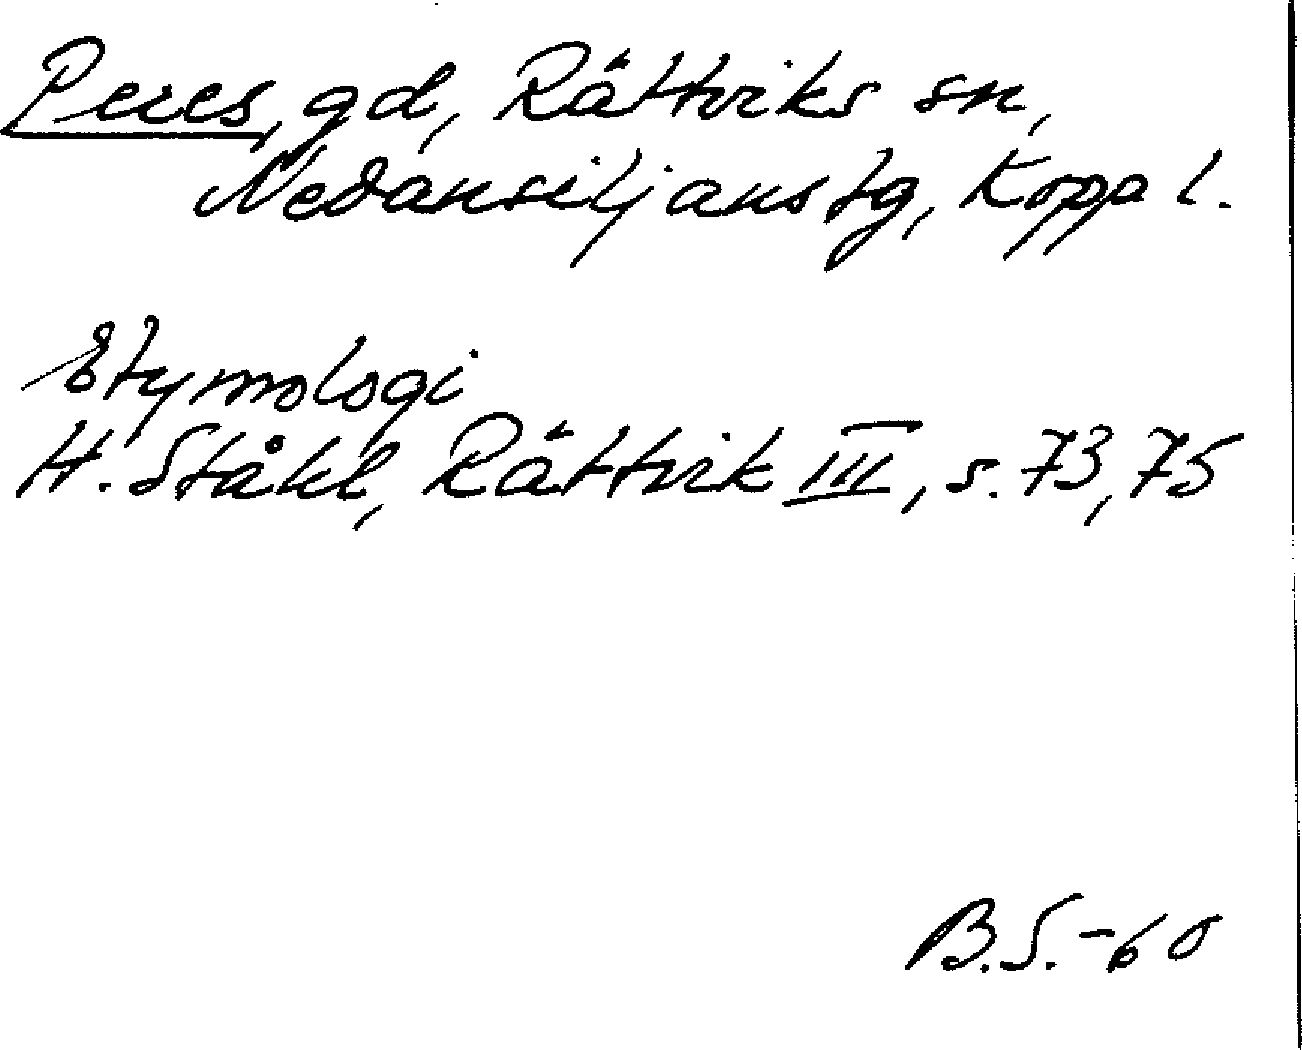 Peres, gd, Rättviks sn,
Nedansiljans tg, Kopp. l.
Etymologi
H. Ståhl, Rättvik III, s. 73, 75
B.S. -60